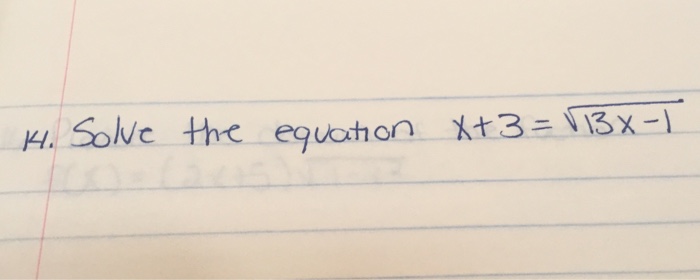 14. Solve the equation x+3=√13x-1